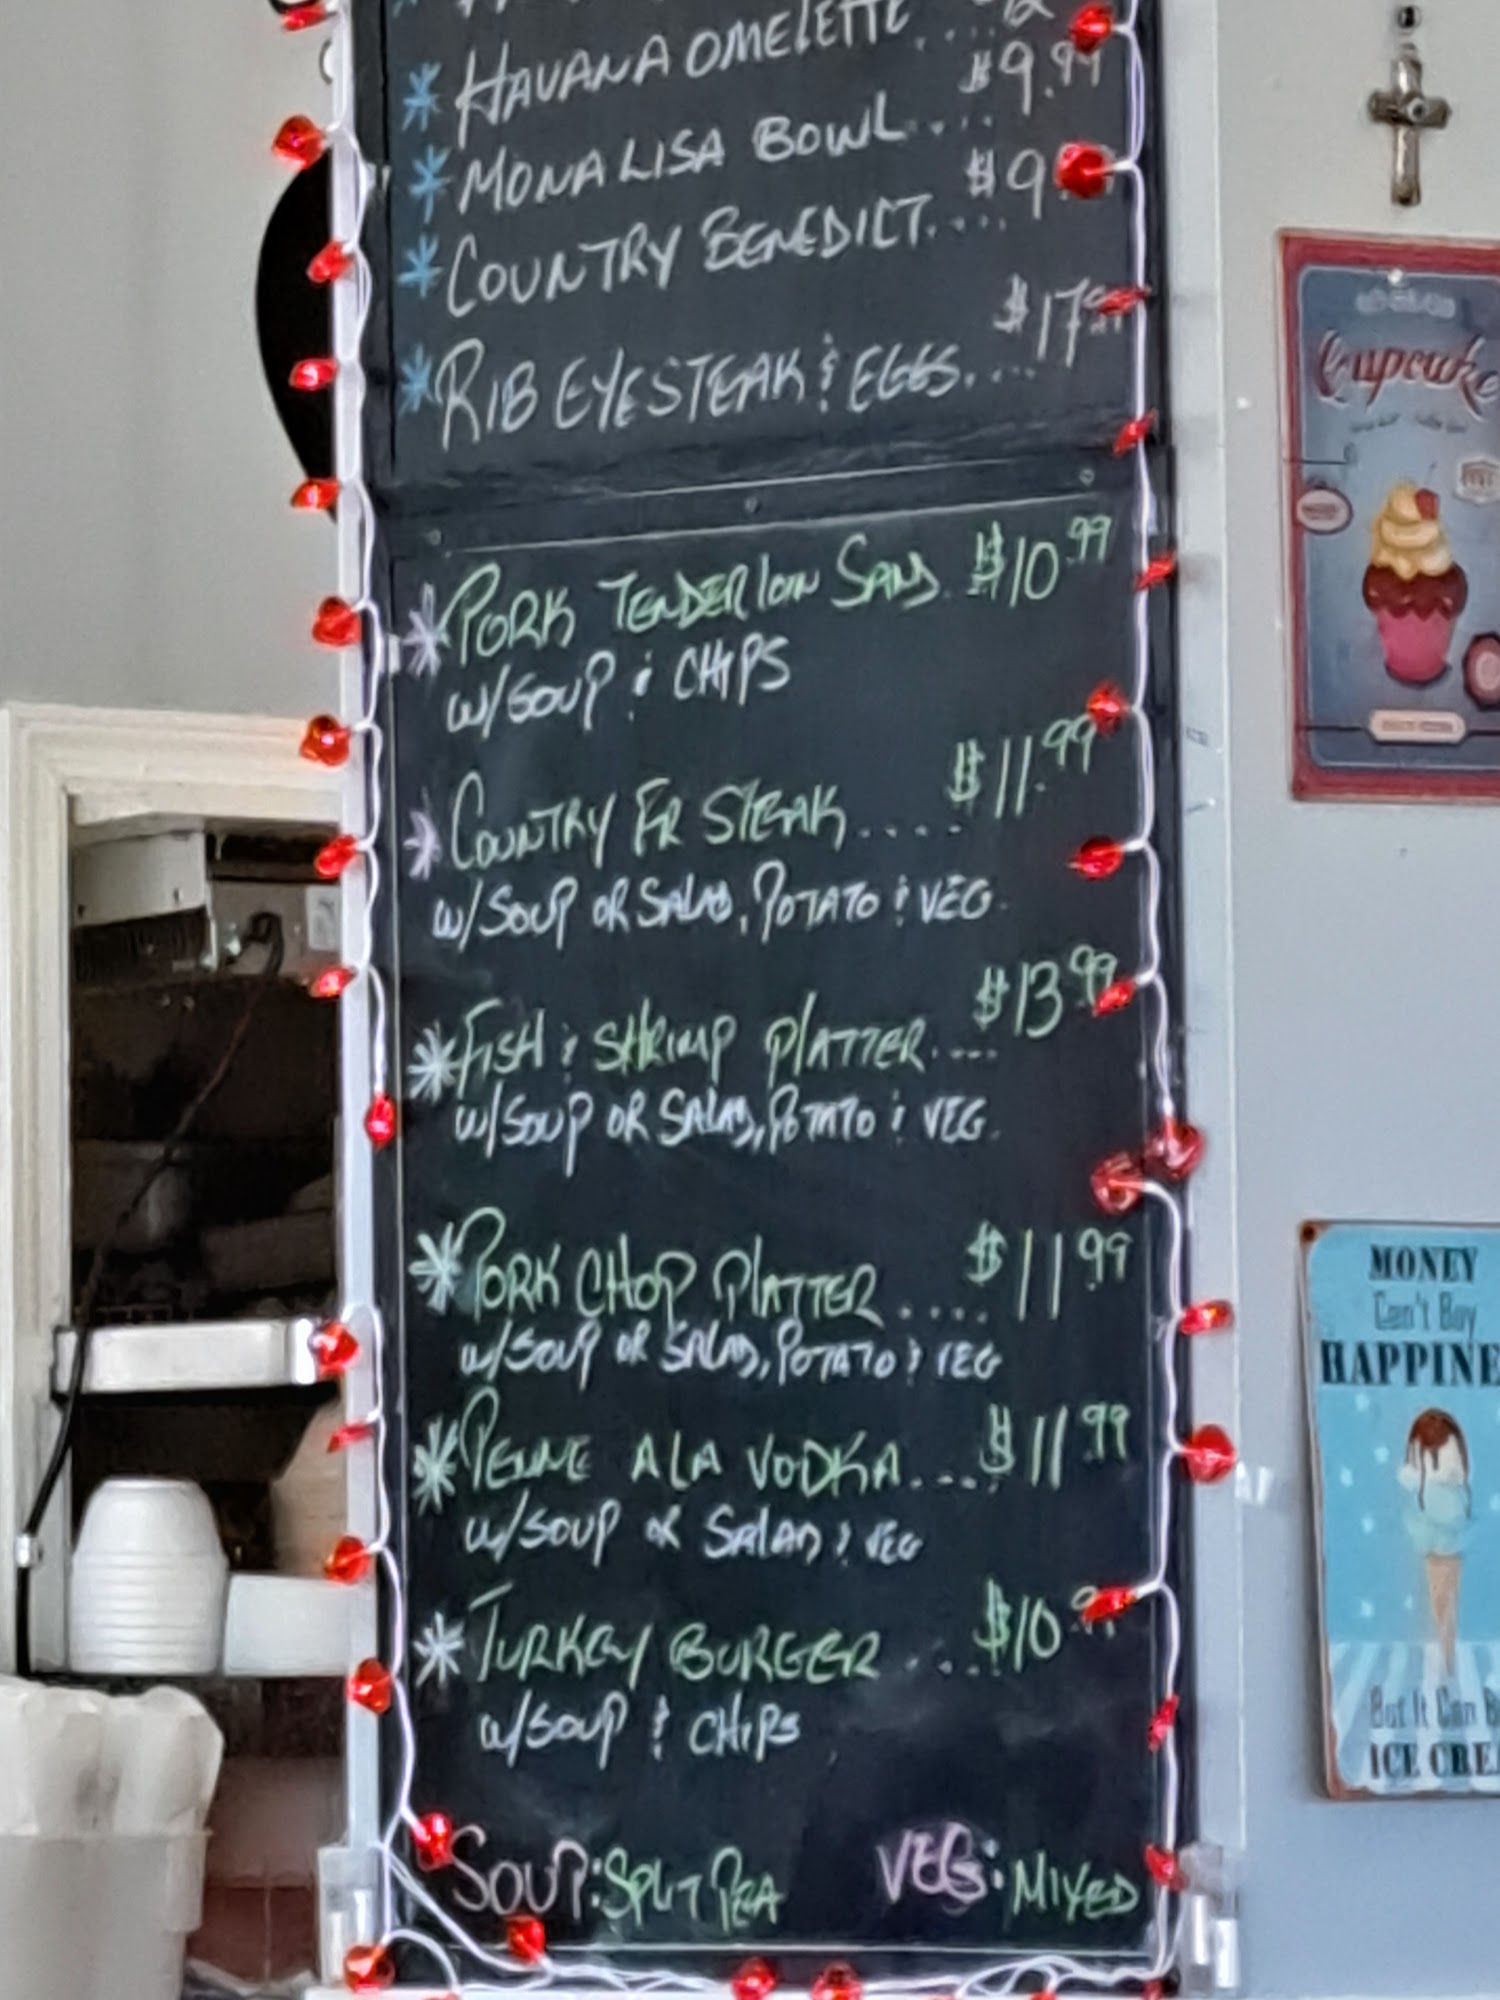 * HAVANA OMELETTE ....
* MONA LISA BOWL .... $9.99
* COUNTRY BENEDICT .... $9
* RIB EYE STEAK & EGGS .... $17.
* PORK TENDERLOIN SAND. $10.99
W/SOUP & CHIPS
* COUNTRY FR STEAK ..... $11.99
W/SOUP OR SALAD, POTATO & VEG.
* FISH & SHRIMP PLATTER .... $13.99
W/SOUP OR SALAD, POTATO & VEG.
* PORK CHOP PLATTER .... $11.99
W/SOUP OR SALAD, POTATO & VEG
* PENNE ALA VODKA .... $11.99
W/SOUP OR SALAD & VEG
* TURKEY BURGER .... $10.
W/SOUP & CHIPS
SOUP: SPLIT PEA VEG: MIXED
Cupcake
MONEY
Can't Buy
HAPPINE
But It Can B
ICE CREA